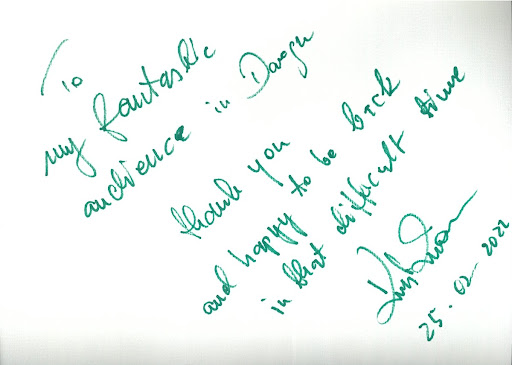 To
my fantastic
audience in Daegu
thank you
and happy to be back
in that difficult time
25.02-2022